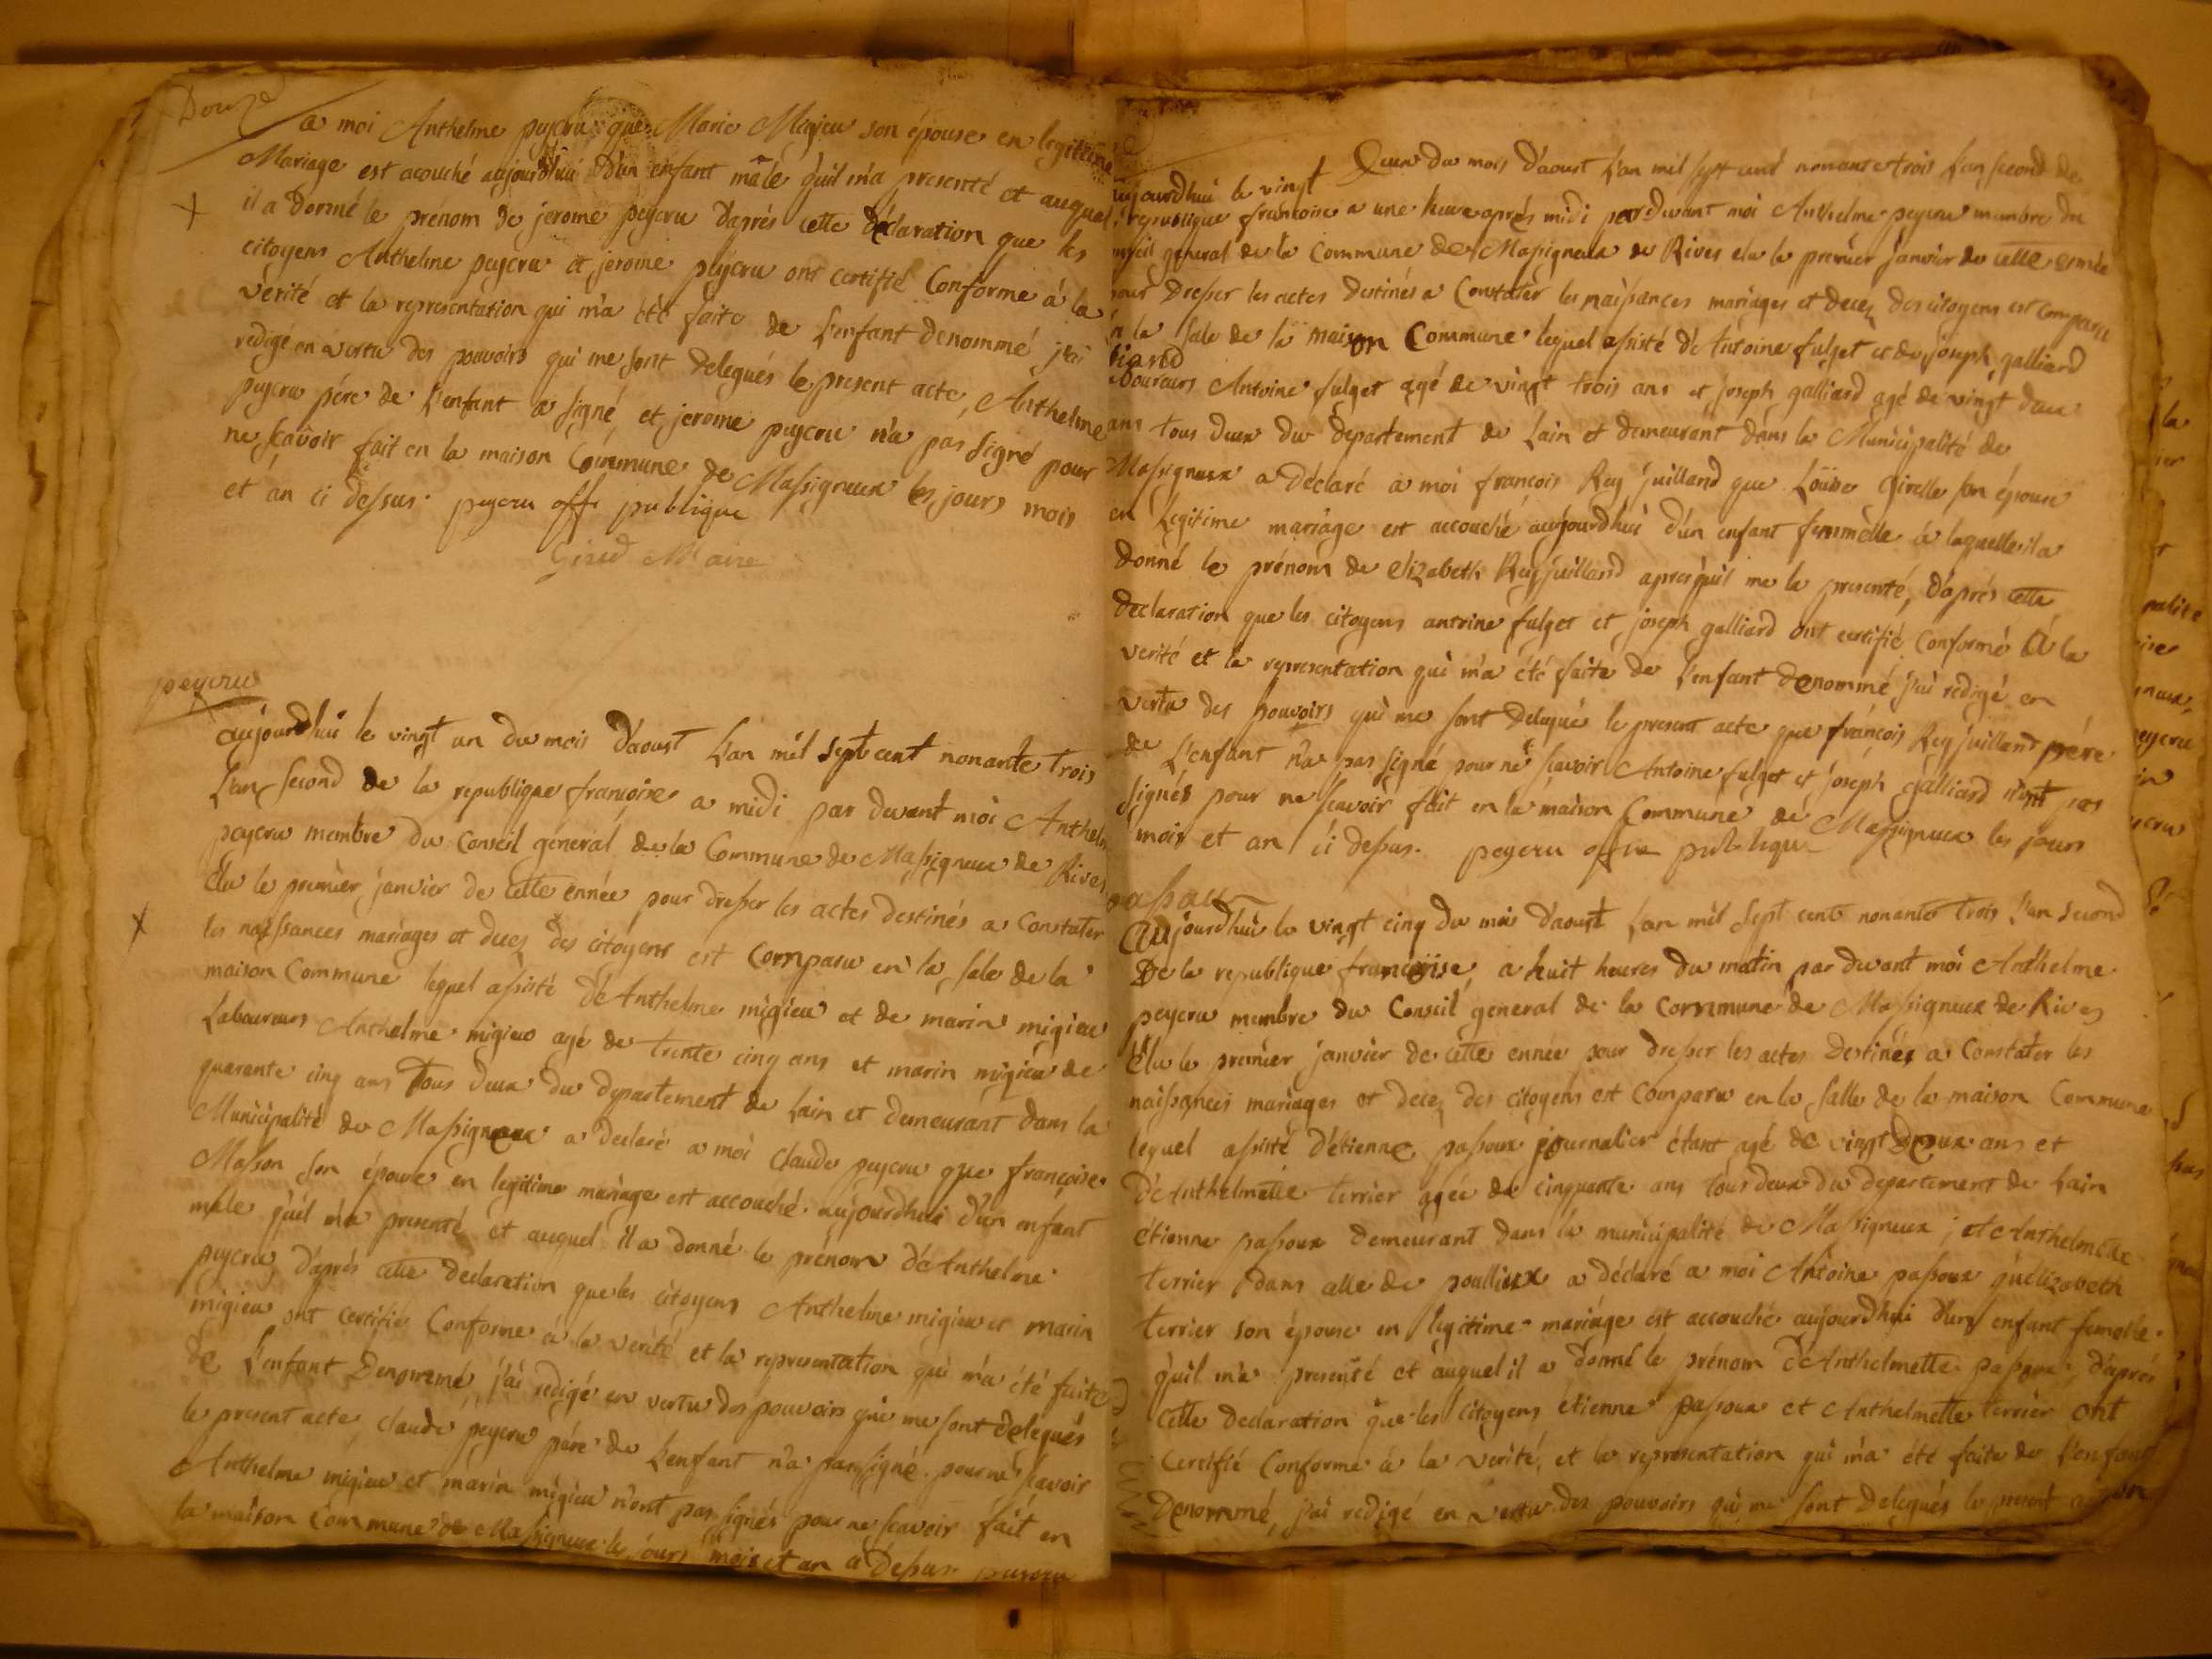 Douze
a moi Anthelme peycru que Marie Migieu son épouse en legitime
Mariage est acouché aujourdhui d'un enfant mâle quil m'a presenté et auquel
il a donné le prénom de jerome peycru d'aprés cette déclaration que les
citoyens Anthelme peycru et jerome peycru ont certifié Conforme à la
vérité et la representation qui m'a été faite de L'enfant denommé j'ai
redigé en vertu des pouvoirs qui me sont delegués le present acte, Anthelme
peycru pére de L'enfant a signé et jerome peycru n'a pas signé pour
ne sçavoir fait en la maison Commune de Massigneux les jours mois
et an ci dessus. peycru offi publique
Maire
peycru
aujourdhui le vingt un du mois d'aoust L'an mil sept cent nonante trois
L'an second de la republique françoise a midi par devant moi Anthelm
peycru membre du Conseil general de la Commune de Massigneux de Rives
Élu le premier janvier de cette ennée pour dresser les actes destinés a Constater
les naissances mariages et decez des citoyens est comparu en la sale de la
maison Commune lequel assisté d'Anthelme migieu et de marin migieu
Laboureurs Anthelme migieu agé de trente cinq ans et marin migieu de
quarente cinq ans Tous deux du departement de Lain et demeurant dans la
Municipalité de Massigneux a declaré a moi Claude peycru que françoise
Masson son épouse en legitime mariage est accouché aujourdhui d'un enfant
mâle qu'il m'a presenté et auquel il a donné le prénom d'Anthelme
peycru, d'aprés cette declaration que les citoyens Anthelme migieu et marin
migieu ont certifié Conforme à la verité et la representation qui m'a été faite
de L'enfant Denommé, j'ai redigé en vertu des pouvoirs qui me sont delegués
le present acte, claude peycru pére de L'enfant n'a pas signé pour ne scavoir
Anthelme migieu et marin migieu n'ont pas signés pour ne scavoir fait en
la maison Commune de Massigneux les jours mois et an ci dessus peycru
aujourdhui le vingt Deux du mois d'aoust L'an mil sept cent nonante trois L'an second de
republique françoise a une heure aprés midi par devant moi Anthelme peycru membre du
general de la Commune de Massigneux de Rives elu le premier janvier de cette ennée
pour dresser les actes destinés a Constater les naissances mariages et decez des citoyens est comparu
la sale de la maison Commune lequel assisté d'Antoine fulget et de joseph galliard
Laboureurs Antoine fulget agé de vingt trois ans et joseph galliard agé de vingt deux
ans tous deux du departement de Lain et demeurant dans la Municipalité de
Massigneux a déclaré a moi françois Rey juilland que Loüise Girelle son épouse
en Legitime mariage est accouché aujourdhui d'un enfant femmelle à laquelle il a
donné le prénom de elizabeth Rey juilland apres quil me la presenté, d'aprés cette
declaration que les citoyens antoine fulget et joseph galliard ont certifié Conforme à la
verité et la representation qui m'a été faite de L'enfant denommé j'ai redigé en
vertu des pouvoirs qui me sont delegué le present acte que françois Rey juilland pére
de L'enfant n'a pas signé pour ne scavoir Antoine fulget et joseph galliard n'ont pas
signés pour ne scavoir fait en la maison Commune de Massigneux les jours
mois et an ci dessus. peycru offi publique
passoux
Aujourdhui le vingt cinq du mois d'aoust L'an mil sept cent nonante trois L'an second
De la republique françoise, a huit heures du matin par devant moi Anthelme
peycru membre du Conseil general de la Commune de Massigneux de Rives
élu le premier janvier de cette ennée pour dresser les actes destinés a Constater les
naissances mariages et decez des citoyens est comparu en la salle de la maison Commune
lequel assisté d'étienne passoux journalier étant agé de vingt Deux ans et
d'Anthelmette terrier agée de cinquante ans tous deux du departement de Lain
étienne passoux demeurant dans la municipalité de Massigneux, et Anthelmette
terrier dans celle de poullieux a déclaré a moi Antoine passoux qu'elizabeth
terrier son épouse en legitime mariage est accouché aujourdhui d'un enfant femelle
qu'il m'a presenté et auquel il a donné le prénom d'Anthelmette passoux, d'aprés
cette declaration que les citoyens étienne passoux et Anthelmette terrier ont
certifié Conforme à la verité, et la representation qui m'a été faite de L'enfant
Denommé, j'ai redigé en vertu des pouvoirs qui me sont delegués le present